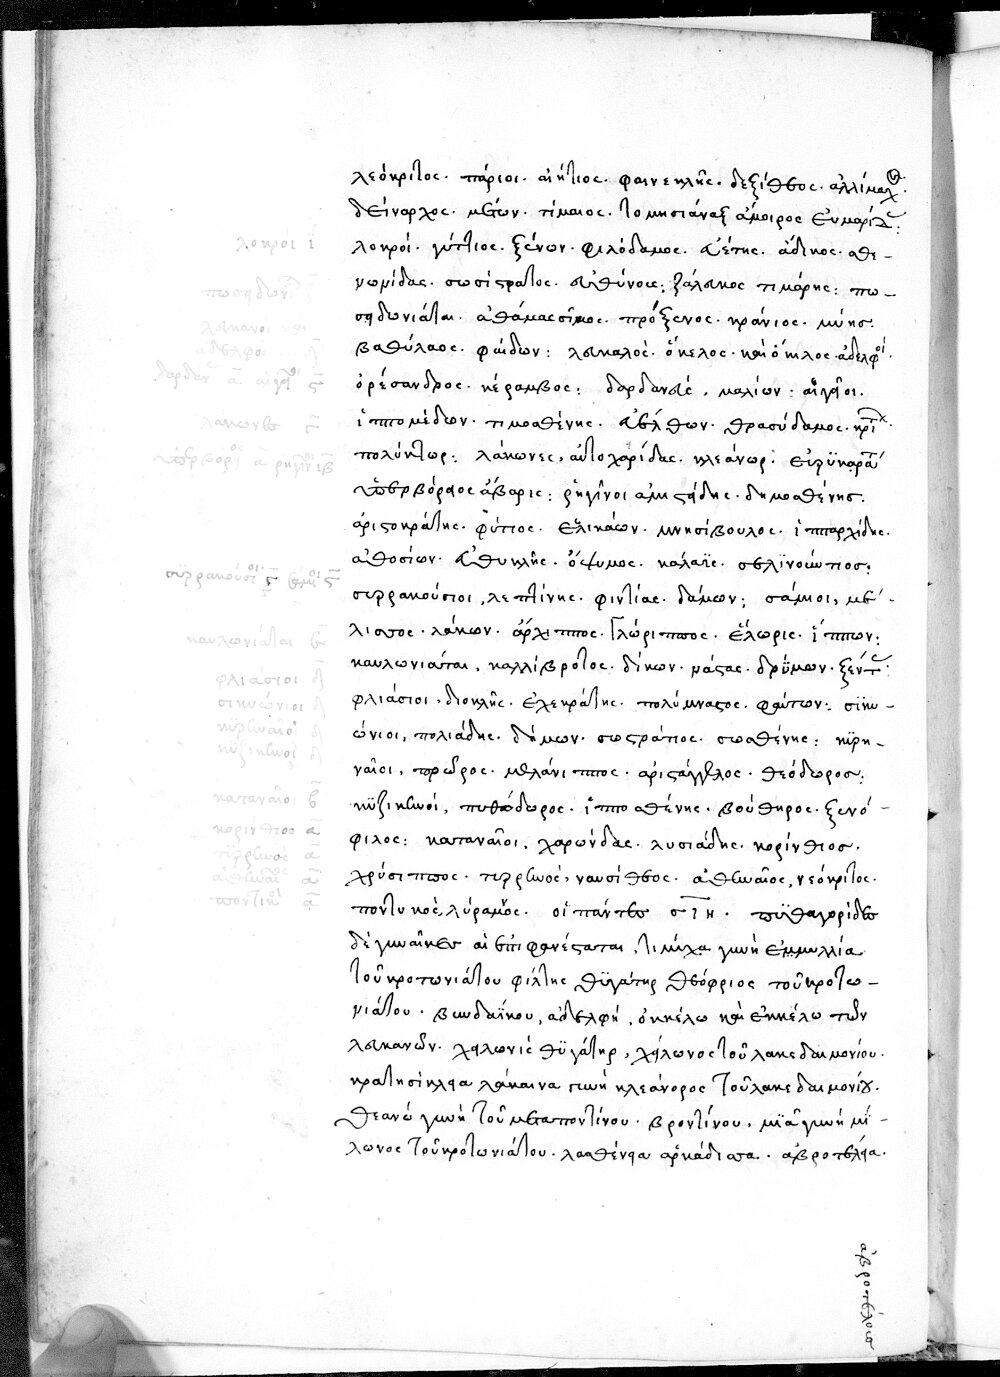 λεόκριτος. πάριοι. αἰήτιος. φαινεκλῆς. δεξίθεος. ἀλκίμαχος.
δείναρχος. μέτων. τίμαιος. τομησιάναξ ἄμοιρος εὐμαρίδ:
λοκροί. γύττιος. ξένων. φιλόδαμος. εὐέτης. ἄδικος. σθε-
νωνίδας. σωσίστρατος. εὐθύνους: ζάλευκος τιμάρης: πο-
σειδωνιάται. ἀθάμας σῖμος. πρόξενος. κράνιος. μύης.
βαθύλαος. φαίδων: λευκανοὶ. ὄκελος. καὶ ὄκιλος ἀδελφοί.
ὀρέσανδρος. κέραμβος: δαρδανεύς. μαλίων: αἰγαῖοι.
ἱππομέδων. τιμοσθένης. εὐέλθων. θρασύδαμος. κρίτ.
πολύκτωρ: λάκωνες, αὐτοχαρίδας. κλεάνωρ. εὐρϋκράτ
ὑπερβόραιος ἄβαρις: ῥηγῖνοι ἀριστείδης. δημοσθένης.
ἀριστοκράτης. φύτιος. ἑλικάων. μνησίβουλος. ἱππαρχίδης.
ἀθοσίων. εὐθυκλῆς. ὄψιμος. κάλαϊς. σελϊνούντιος:
συρρακούσιοι, λεπτίνης. φιντίας. δάμων: σάμιοι, μέ-
λισσος. λάκων. ἄρχιππος. γλώριππος. ἕλωρις. ἵππων:
καυλωνιάται, καλλίβροτος. δίκων. νάστας. δρΰμων. ξεντ:
φλιάσιοι, διοκλῆς. ἐχεκράτης. πολύμναστος. φάντων: σικυ-
ώνιοι, πολιάδης. δήμων. σωστράτιος. σωσθένης: κϋρη-
ναῖοι, πρῶρος. μελάνιππος. ἀριστάγγελος. θεόδωρος:
κϋζικηνοί, πυθόδωρος. ἱπποσθένης. βούθηρος. ξενό-
φιλος: καταναῖοι, χαρώνδας. λυσιάδης. κορίνθιος.
χρύσιππος. τυρρηνός, ναυσίθεος. ἀθηναῖος, νεόκριτος.
ποντικός, λύραμνος. οἱ πάντες σῑη. πϋθαγορίδες
δὲ γυναῖκες αἱ ἐπιφανέσταται, τιμύχα γυνὴ ἡ μυλλία
τοῦ κροτωνιάτου φίλτης θϋγάτηρ θεόφριος τοῦ κροτω-
νιάτου. βυνδαΐκου, ἀδελφή, ὀκκέλω καὶ ἐκκέλω τῶν
λευκανῶν. χειλωνὶς θϋγάτηρ, χείλωνος τοῦ λακεδαιμονίου.
κρατησίκλεια λάκαινα γυνὴ κλεάνορος τοῦ λακεδαιμονίου.
θεανὼ γυνὴ τοῦ μεταποντίνου. βροντίνου, μϋῖα γυνὴ μί-
λωνος τοῦ κροτωνιάτου. λασθένεια ἀρκάδισσα. ἁβροτέλεια.
ἁβροτέλους
λοκροί ῑ
λάκωνες γ̄
καυλωνιάται
φλιάσιοι δ̄
σικυώνιοι δ̄
κϋρηναῖοι δ̄
κϋζικηνοί δ̄
καταναῖοι β̄
κορίνθιος ᾱ
τϋρρηνος ᾱ